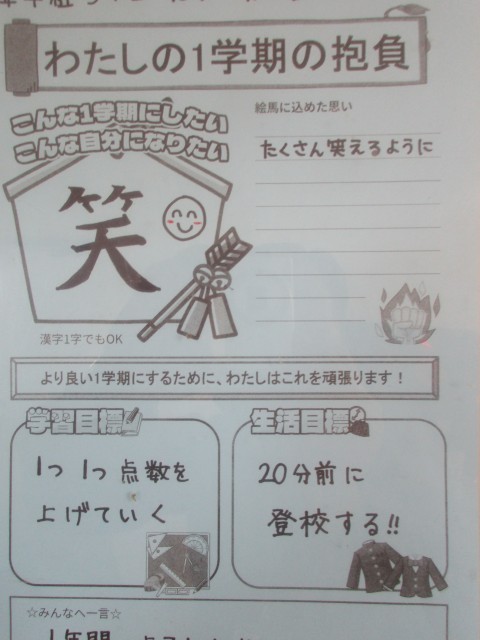 わたしの1学期の抱負
こんな1学期にしたい
こんな自分になりたい
絵馬に込めた思い
たくさん笑えるように
笑
漢字1字でもOK
より良い1学期にするために、わたしはこれを頑張ります！
学習目標
1つ1つ点数を
上げていく
生活目標
20分前に
登校する!!
☆みんなへ一言☆
1年間